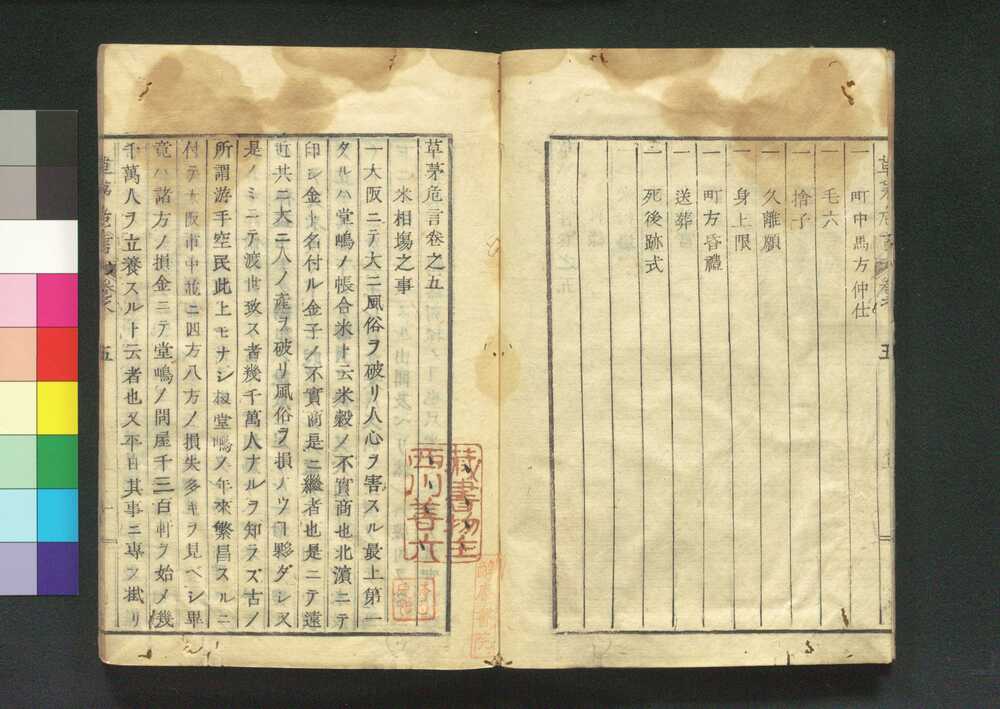 一 町中馬方仲仕
一 毛六
一 捨子
一 久離願
一 身上限
一 町方昏禮
一 送葬
一 死後跡式
草茅危言巻之五
米相場之事
一大阪ニテ大ニ風俗ヲ破リ人心ヲ害スル最上第一
タルハ堂嶋ノ帳合米ト云米穀ノ不實商也北濵ニテ
印シ金ト名付ル金子ノ不實商是ニ繼者也是ニテ遠
近共ニ大ニ人ノ産ヲ破リ風俗ヲ損ノウ夥ダシス
是ノミニテ渡世致ス者幾千萬人ナルヲ知ラズ古ノ
所謂游手空民此上モナシ扨堂嶋ノ年來繁昌スルニ
付テ大阪市中並ニ四方八方ノ損失多キヲ見ベシ畢
竟ハ諸方ノ損金ニテ堂嶋ノ問屋千三百軒ヲ始メ幾
千萬人ヲ立養スルト云者也又平日其事ニ専ラ掛リ
藏書物主
西川善六